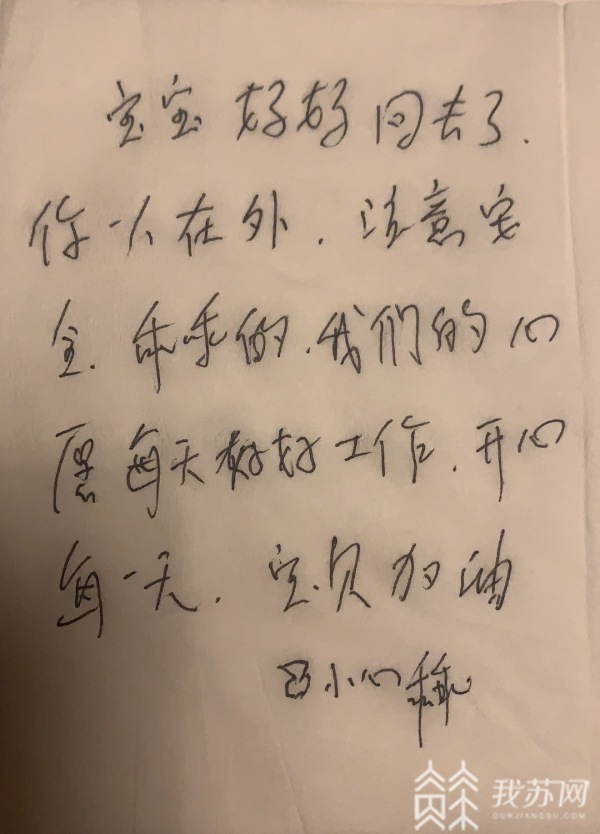 宝宝好好回去了.
你一人在外.注意安
全.乖乖的.我们的心
愿每天好好工作.开心
每一天.宝贝加油
小心
我苏网
OURJIANGSU.COM